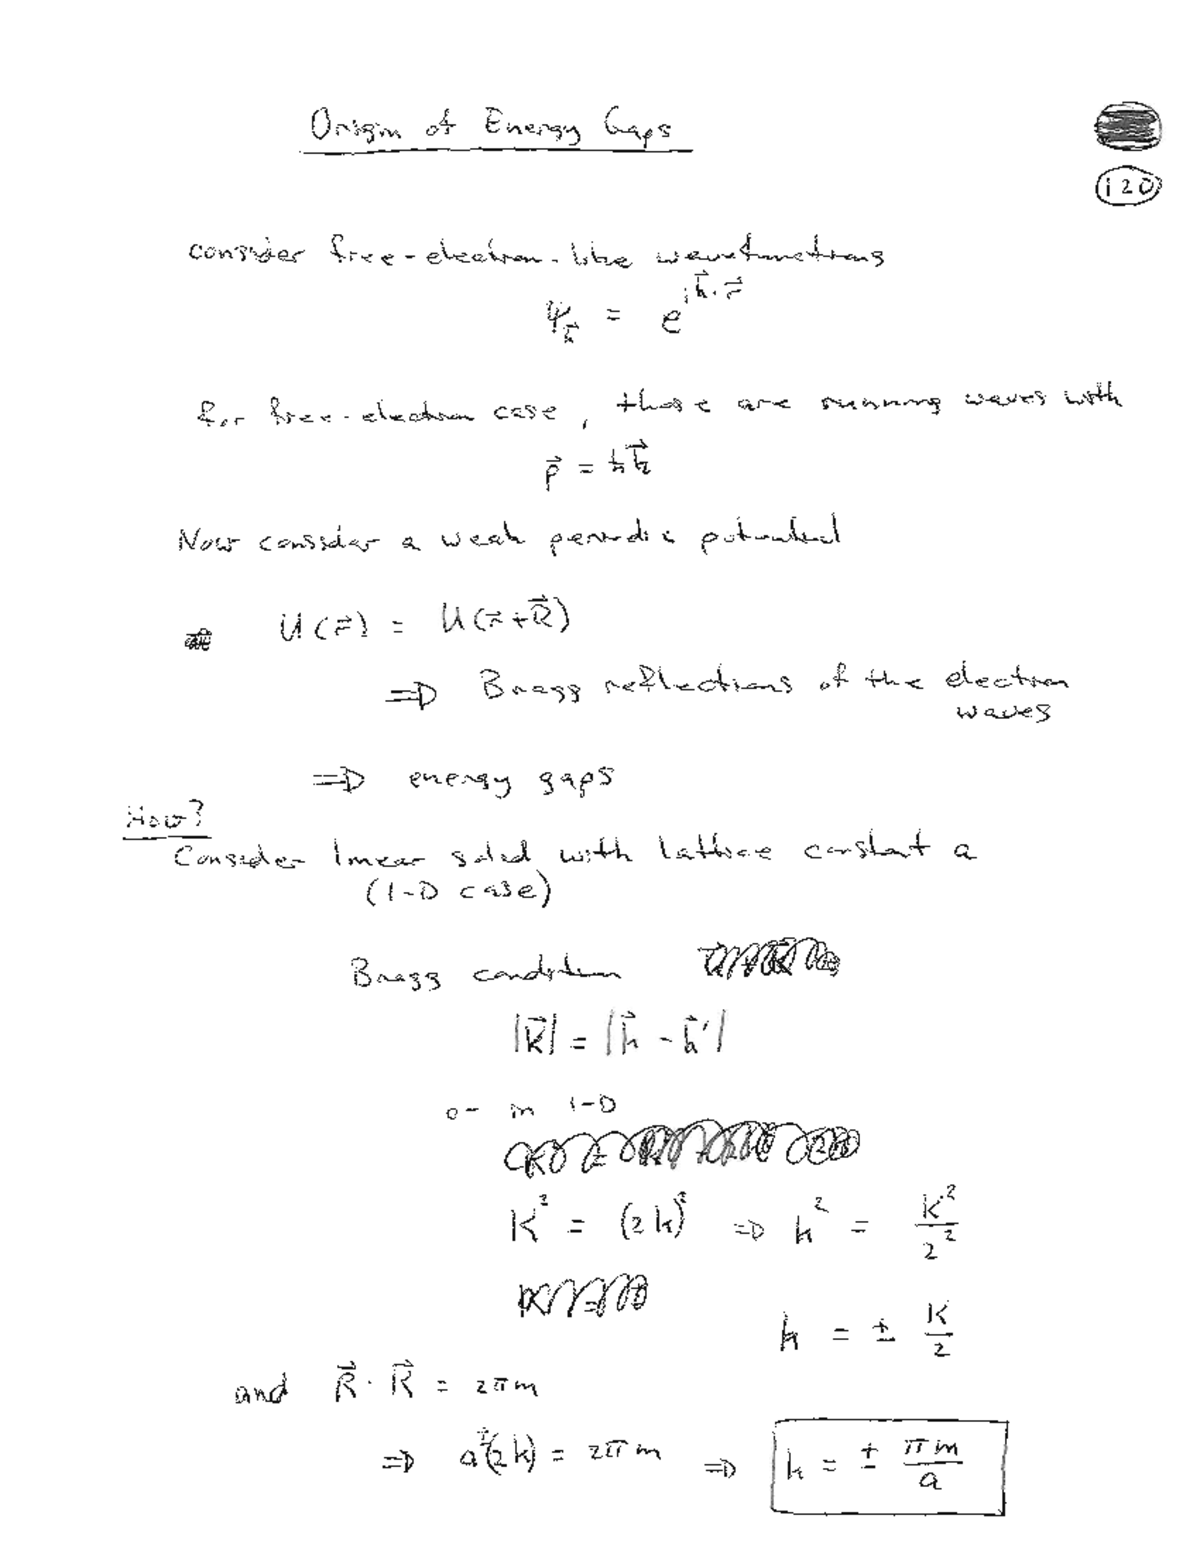 Origin of Energy Gaps
120
consider free-electron-like wavefunctions
ψ_k⃗ = e^{i k⃗·r⃗}
for free-electron case, these are running waves with
p⃗ = ħk⃗
Now consider a weak periodic potential
U(r⃗) = U(r⃗+R⃗)
⇒ Bragg reflections of the electron
waves
⇒ energy gaps
How?
Consider linear solid with lattice constant a
(1-D case)
Bragg condition
|K⃗| = |k⃗ - k⃗'|
or in 1-D
K² = (2k)² ⇒ k² = K²/2²
k = ± K/2
and K⃗·R⃗ = 2πm
⇒ a(±2k) = 2πm ⇒ k = ± πm/a